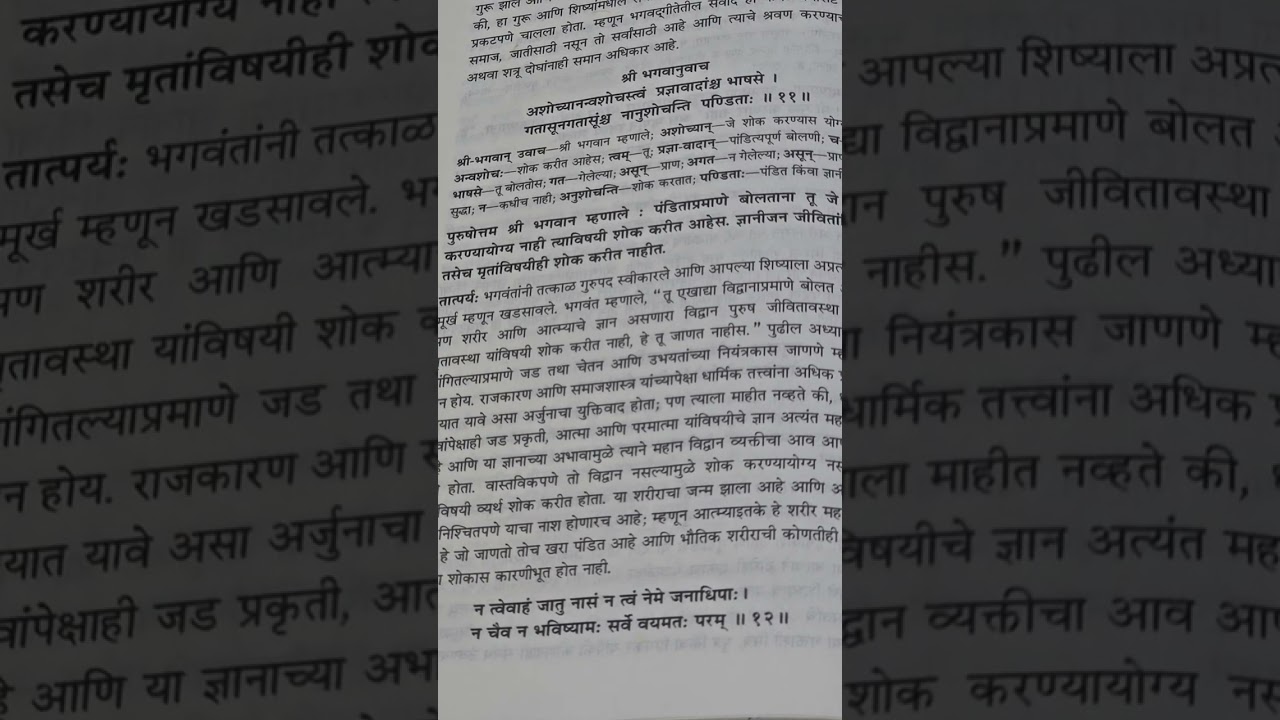 गुरू झाले आणि शिष्यांमधील
की, हा गुरू आणि शिष्यांमधील संवाद
प्रकटपणे चालला होता. म्हणून भगवद्गीतेतील संवाद हा
समाज, जातीसाठी नसून तो सर्वांसाठी आहे आणि त्याचे श्रवण करण्याचा
अथवा शत्रू दोघांनाही समान अधिकार आहे.
श्री भगवानुवाच
अशोच्यानन्वशोचस्त्वं प्रज्ञावादांश्च भाषसे ।
गतासूनगतासूंश्च नानुशोचन्ति पण्डिताः ॥ ११॥
श्री-भगवान् उवाच—श्री भगवान म्हणाले; अशोच्यान्—जे शोक करण्यास योग
अन्वशोचः—शोक करीत आहेस; त्वम्—तू; प्रज्ञा-वादान्—पांडित्यपूर्ण बोलणी; च-
भाषसे—तू बोलतोस; गत—गेलेल्या; असून्—प्राण; अगत—न गेलेल्या; असून्—प्रा
सुद्धा; न—कधीच नाही; अनुशोचन्ति—शोक करतात; पण्डिताः—पंडित किंवा ज्ञानी
पुरुषोत्तम श्री भगवान म्हणाले : पंडिताप्रमाणे बोलताना तू जे
करण्यायोग्य नाही त्याविषयी शोक करीत आहेस. ज्ञानीजन जीवितां
तसेच मृतांविषयीही शोक करीत नाहीत.
तात्पर्य: भगवंतांनी तत्काळ गुरुपद स्वीकारले आणि आपल्या शिष्याला अप्रत
मूर्ख म्हणून खडसावले. भगवंत म्हणाले, “तू एखाद्या विद्वानाप्रमाणे बोलत
पण शरीर आणि आत्म्याचे ज्ञान असणारा विद्वान पुरुष जीवितावस्था
तावस्था यांविषयी शोक करीत नाही, हे तू जाणत नाहीस.” पुढील अध्या
गंगितल्याप्रमाणे जड तथा चेतन आणि उभयतांच्या नियंत्रकास जाणणे म्ह
न होय. राजकारण आणि समाजशास्त्र यांच्यापेक्षा धार्मिक तत्त्वांना अधिक
यात यावे असा अर्जुनाचा युक्तिवाद होता; पण त्याला माहीत नव्हते की,
वांपेक्षाही जड प्रकृती, आत्मा आणि परमात्मा यांविषयीचे ज्ञान अत्यंत मह
हे आणि या ज्ञानाच्या अभावामुळे त्याने महान विद्वान व्यक्तीचा आव आ
होता. वास्तविकपणे तो विद्वान नसल्यामुळे शोक करण्यायोग्य नस
विषयी व्यर्थ शोक करीत होता. या शरीराचा जन्म झाला आहे आणि
निश्चितपणे याचा नाश होणारच आहे; म्हणून आत्म्याइतके हे शरीर मह
हे जो जाणतो तोच खरा पंडित आहे आणि भौतिक शरीराची कोणतीही
शोकास कारणीभूत होत नाही.
न त्वेवाहं जातु नासं न त्वं नेमे जनाधिपाः ।
न चैव न भविष्यामः सर्वे वयमतः परम् ॥ १२॥